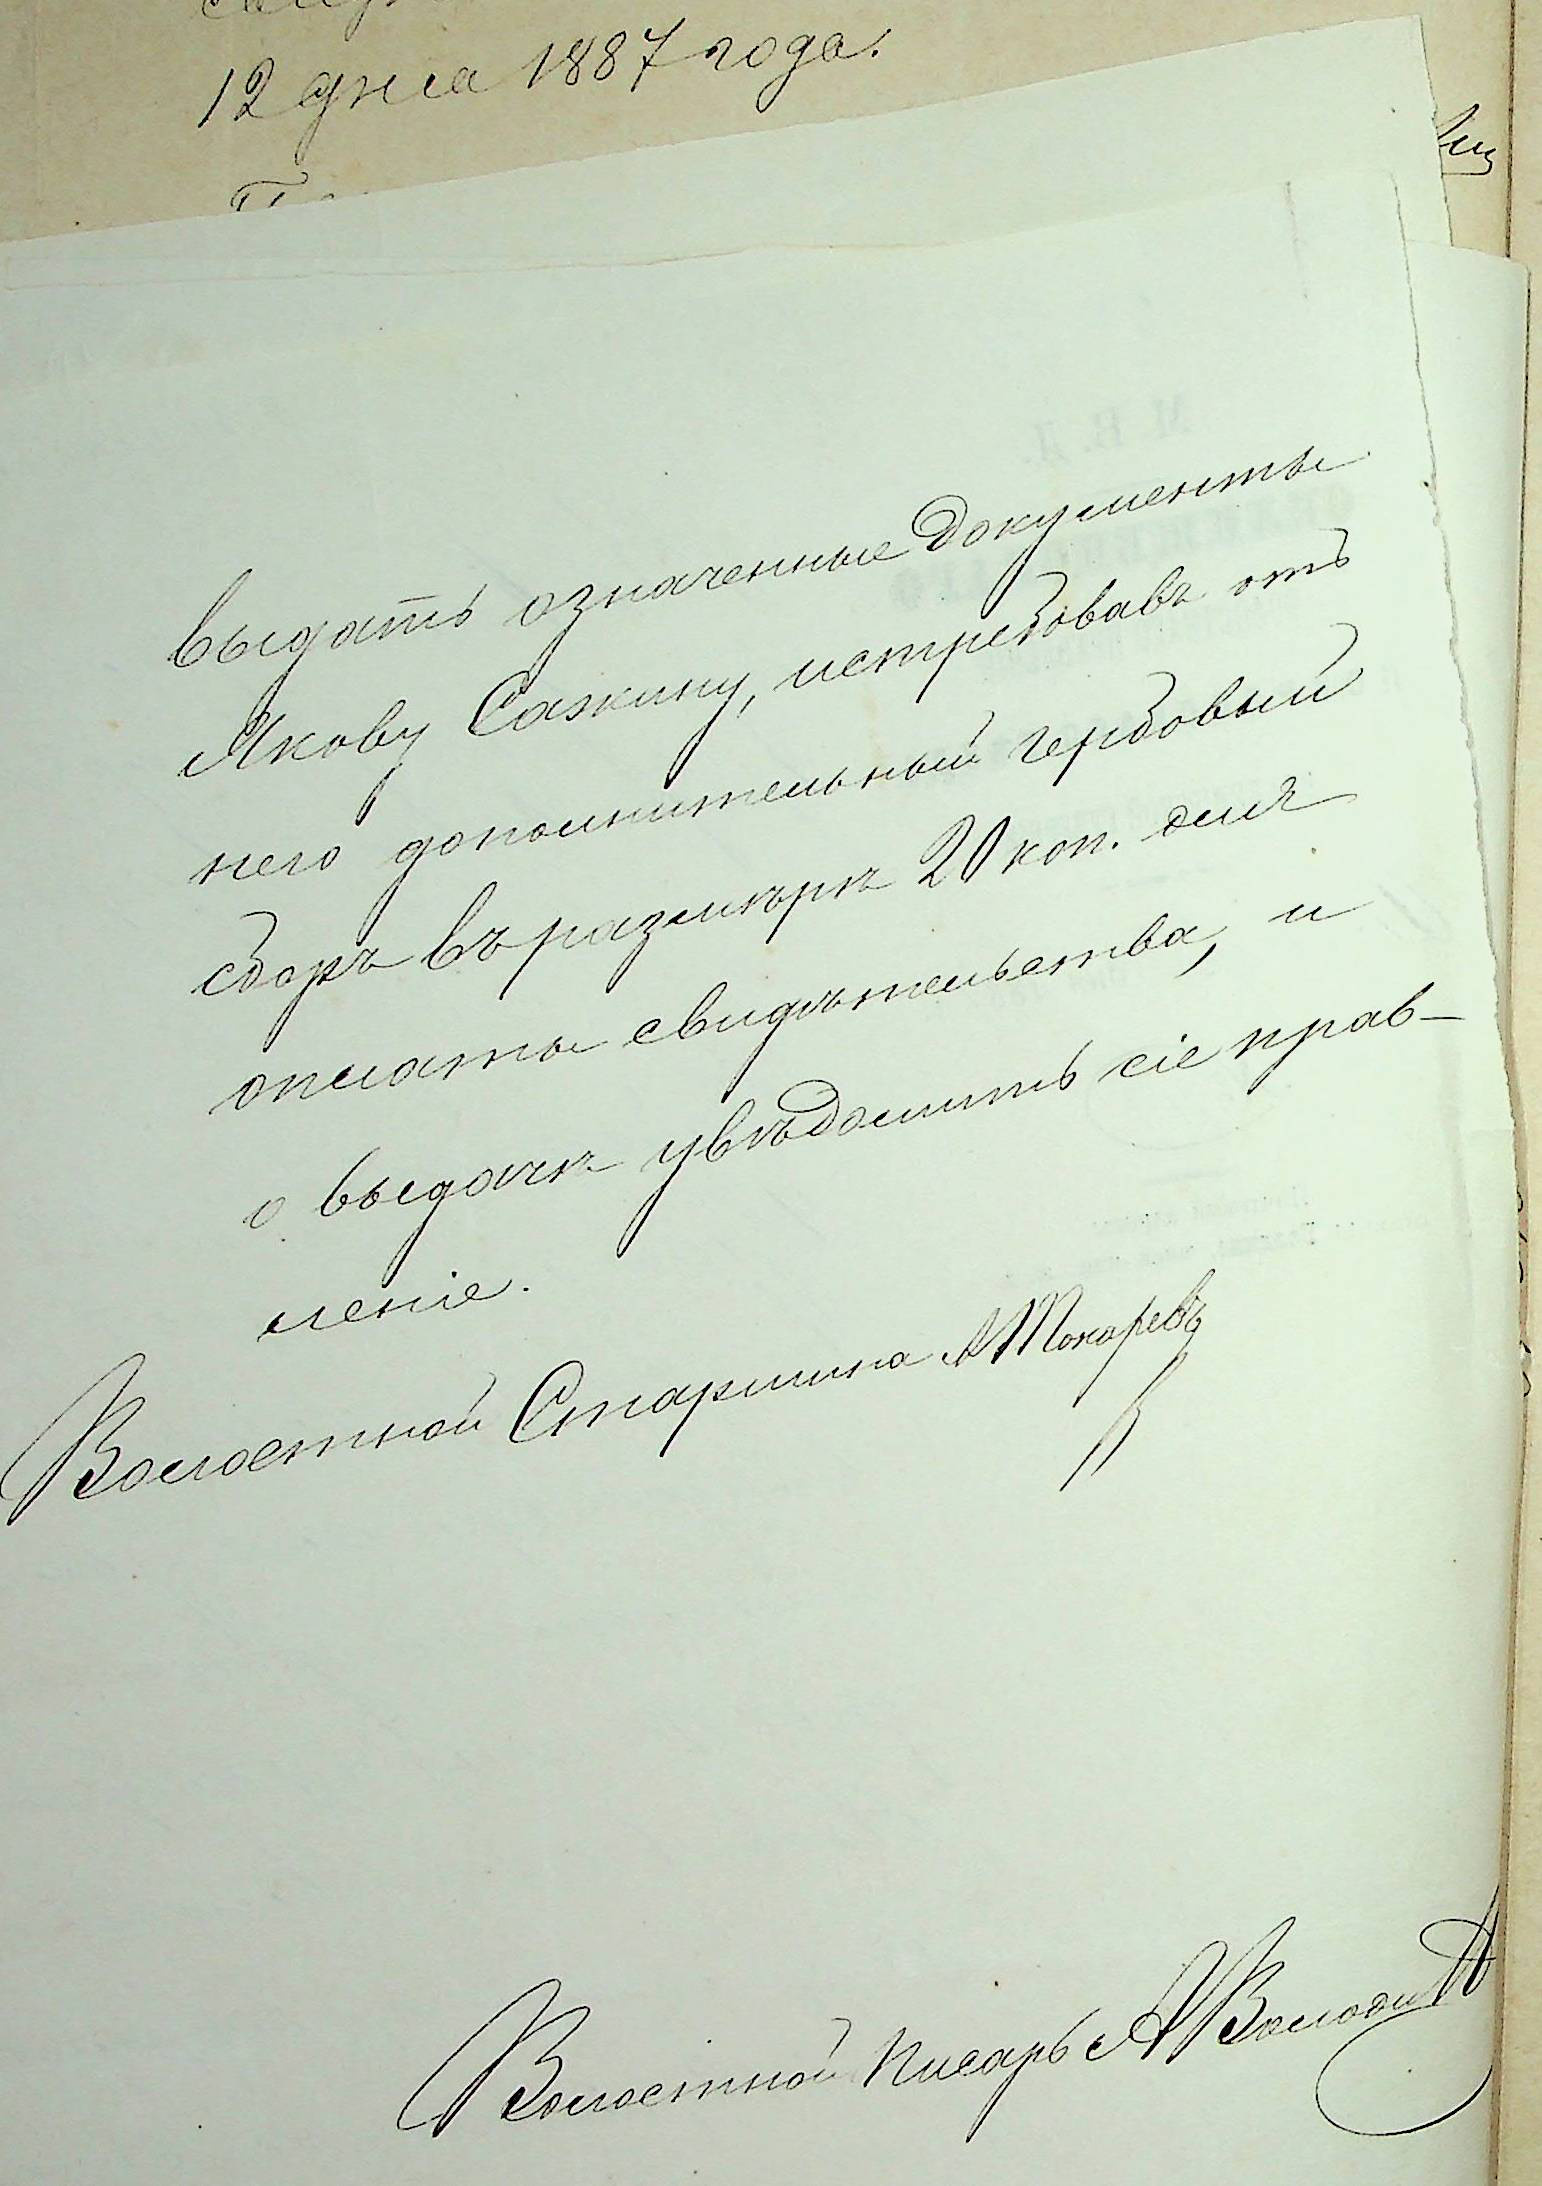 12 дня 1887 года.
выдать означенные документы
Якову Сажину, истребовавъ отъ
него дополнительный гербовый
сборъ въ размѣрѣ 20 коп. для
оплаты свидѣтельства, и
о выдачѣ увѣдомить сіе прав-
леніе.
Волостной Старшина А Токаревъ
Волостной писарь А